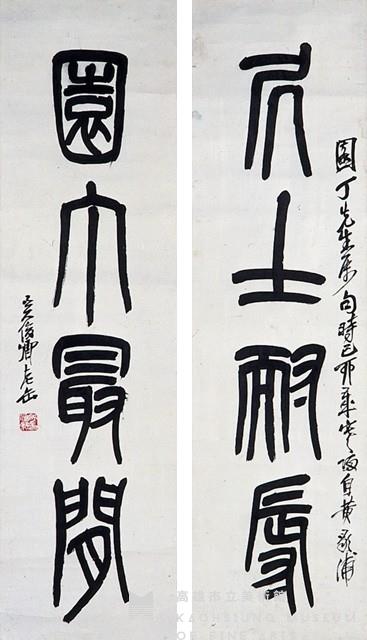 園丁先生屬句時己卯歲寒夜自黃歇浦
居士耐辱
園大最閒
吳俊卿老缶
高雄市立美術館
KAOHSIUNG MUSEUM
OF FINE ARTS